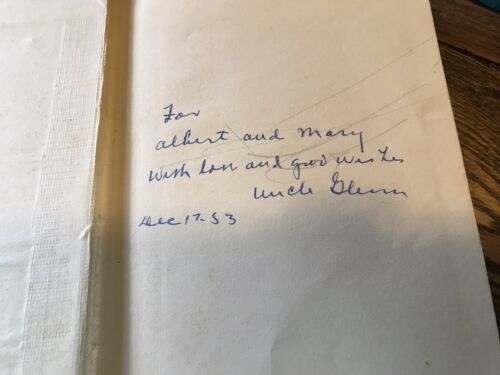 For
Albert and Mary
with love and good wishes
Uncle Glenn
Dec 17-53